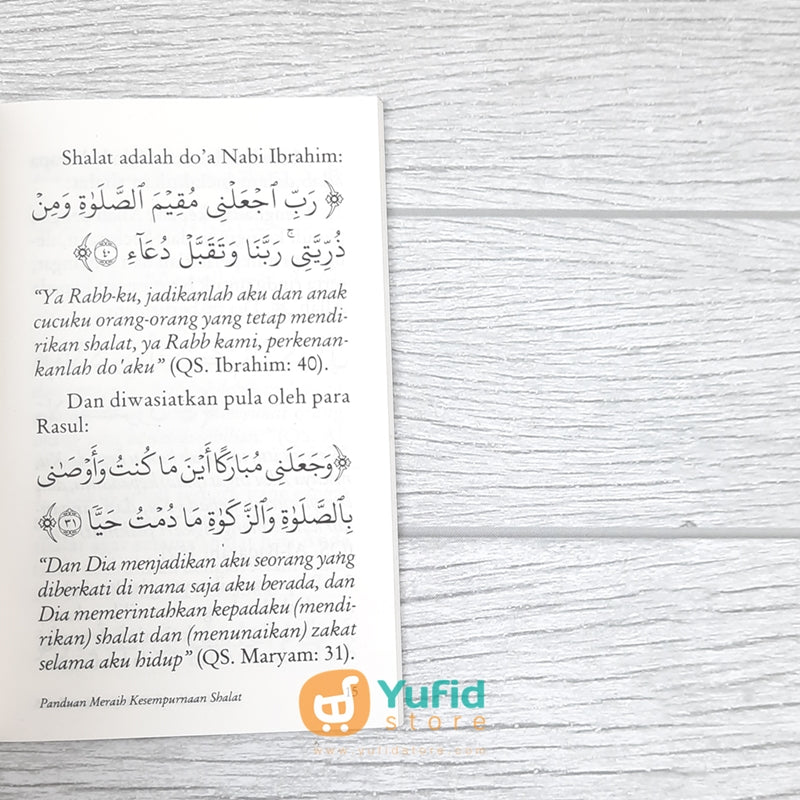 Shalat adalah do'a Nabi Ibrahim:
﴿رَبِّ ٱجْعَلْنِى مُقِيمَ ٱلصَّلَوٰةِ وَمِن
ذُرِّيَّتِى ۚ رَبَّنَا وَتَقَبَّلْ دُعَآءِ ٤٠﴾
"Ya Rabb-ku, jadikanlah aku dan anak
cucuku orang-orang yang tetap mendi-
rikan shalat, ya Rabb kami, perkenan-
kanlah do'aku" (QS. Ibrahim: 40).
Dan diwasiatkan pula oleh para
Rasul:
﴿وَجَعَلَنِى مُبَارَكًا أَيْنَ مَا كُنتُ وَأَوْصَٰنِى
بِٱلصَّلَوٰةِ وَٱلزَّكَوٰةِ مَا دُمْتُ حَيًّا ٣١﴾
"Dan Dia menjadikan aku seorang yang
diberkati di mana saja aku berada, dan
Dia memerintahkan kepadaku (mendi-
rikan) shalat dan (menunaikan) zakat
selama aku hidup" (QS. Maryam: 31).
Panduan Meraih Kesempurnaan Shalat 15
Yufid
store
www.yufidstore.com